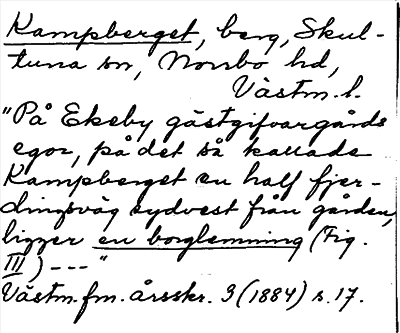 Kampberget, berg, Skul-
tuna sn, Norrbo hd,
Västm. l.
"På Ekeby gästgifvargårds
egor, på det så kallade
Kampberget en half fjer-
dingsväg sydvest från gården,
ligger en borglemning (Fig.
III) --- "
Västm. fm. årsskr. 3 (1884) s. 17.